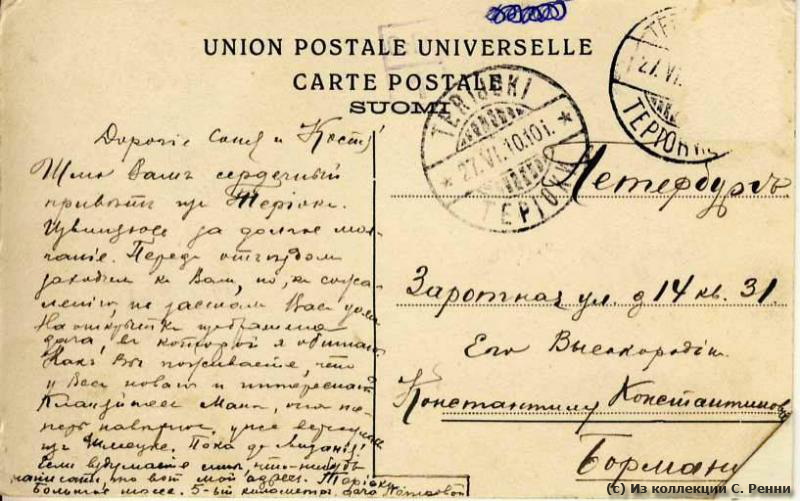 UNION POSTALE UNIVERSELLE
CARTE POSTALE
SUOMI
TERIJOKI
27.VI.10.10 i.
ТЕРІОКИ
27.VI.
ТЕРІОКИ
Дорогіе Соня и Костя!
Шлю Вамъ сердечный
привѣтъ из Теріокъ.
Извиняюсь за долгое мол-
чаніе. Передъ отъѣздом
заходили к Вам, но, к сожа-
лению, не застали Вас дома
На открыткѣ изображена
дача, в которой я обитаю
Какъ Вы поживаете, что
у Вас новаго и интереснаго
те-
перь навѣрное, уже вернулись
из Пока до свиданья!
Если вздумаете мнѣ что-нибудь
написать, то вот мой адрес. Теріоки
Большое шоссе. 5-ый километръ, дача
Петербургъ
Заротная ул. д 14 кв. 31.
Его Высокородію
Константину Константиновичу
Борману
(c) Из коллекции С. Ренни